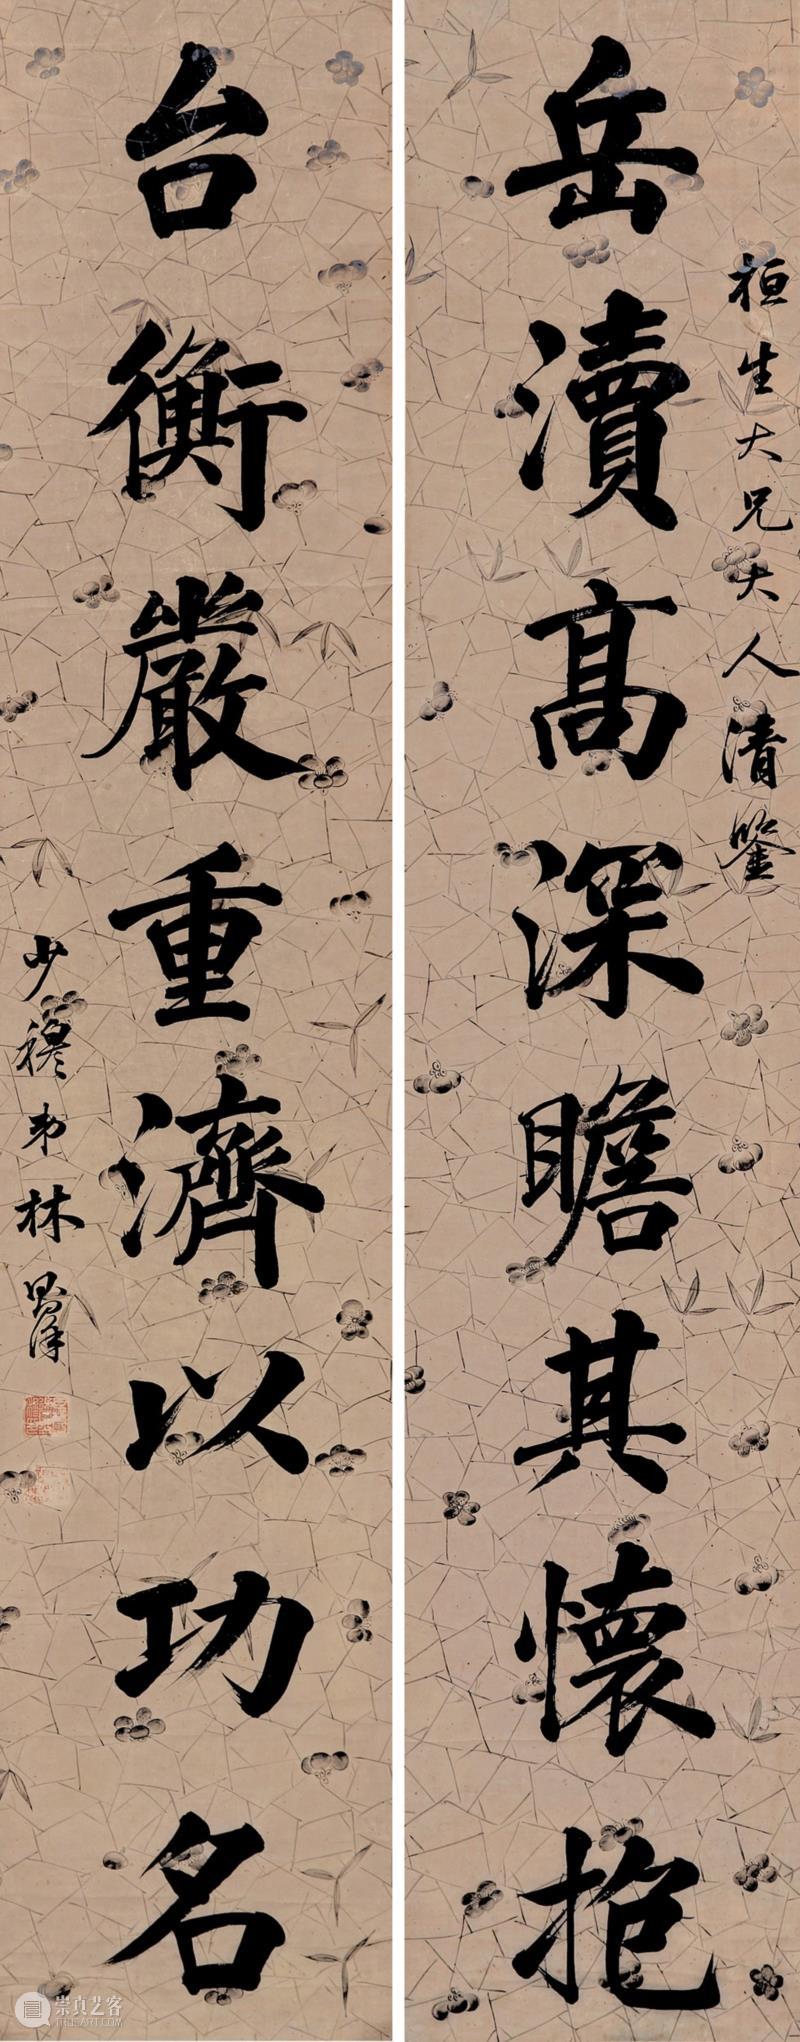 岳瀆高深瞻其懷抱
桓生大兄大人清鑒
台衡嚴重濟以功名
少穆弟林則徐
崇真艺客
TRUEART.COM